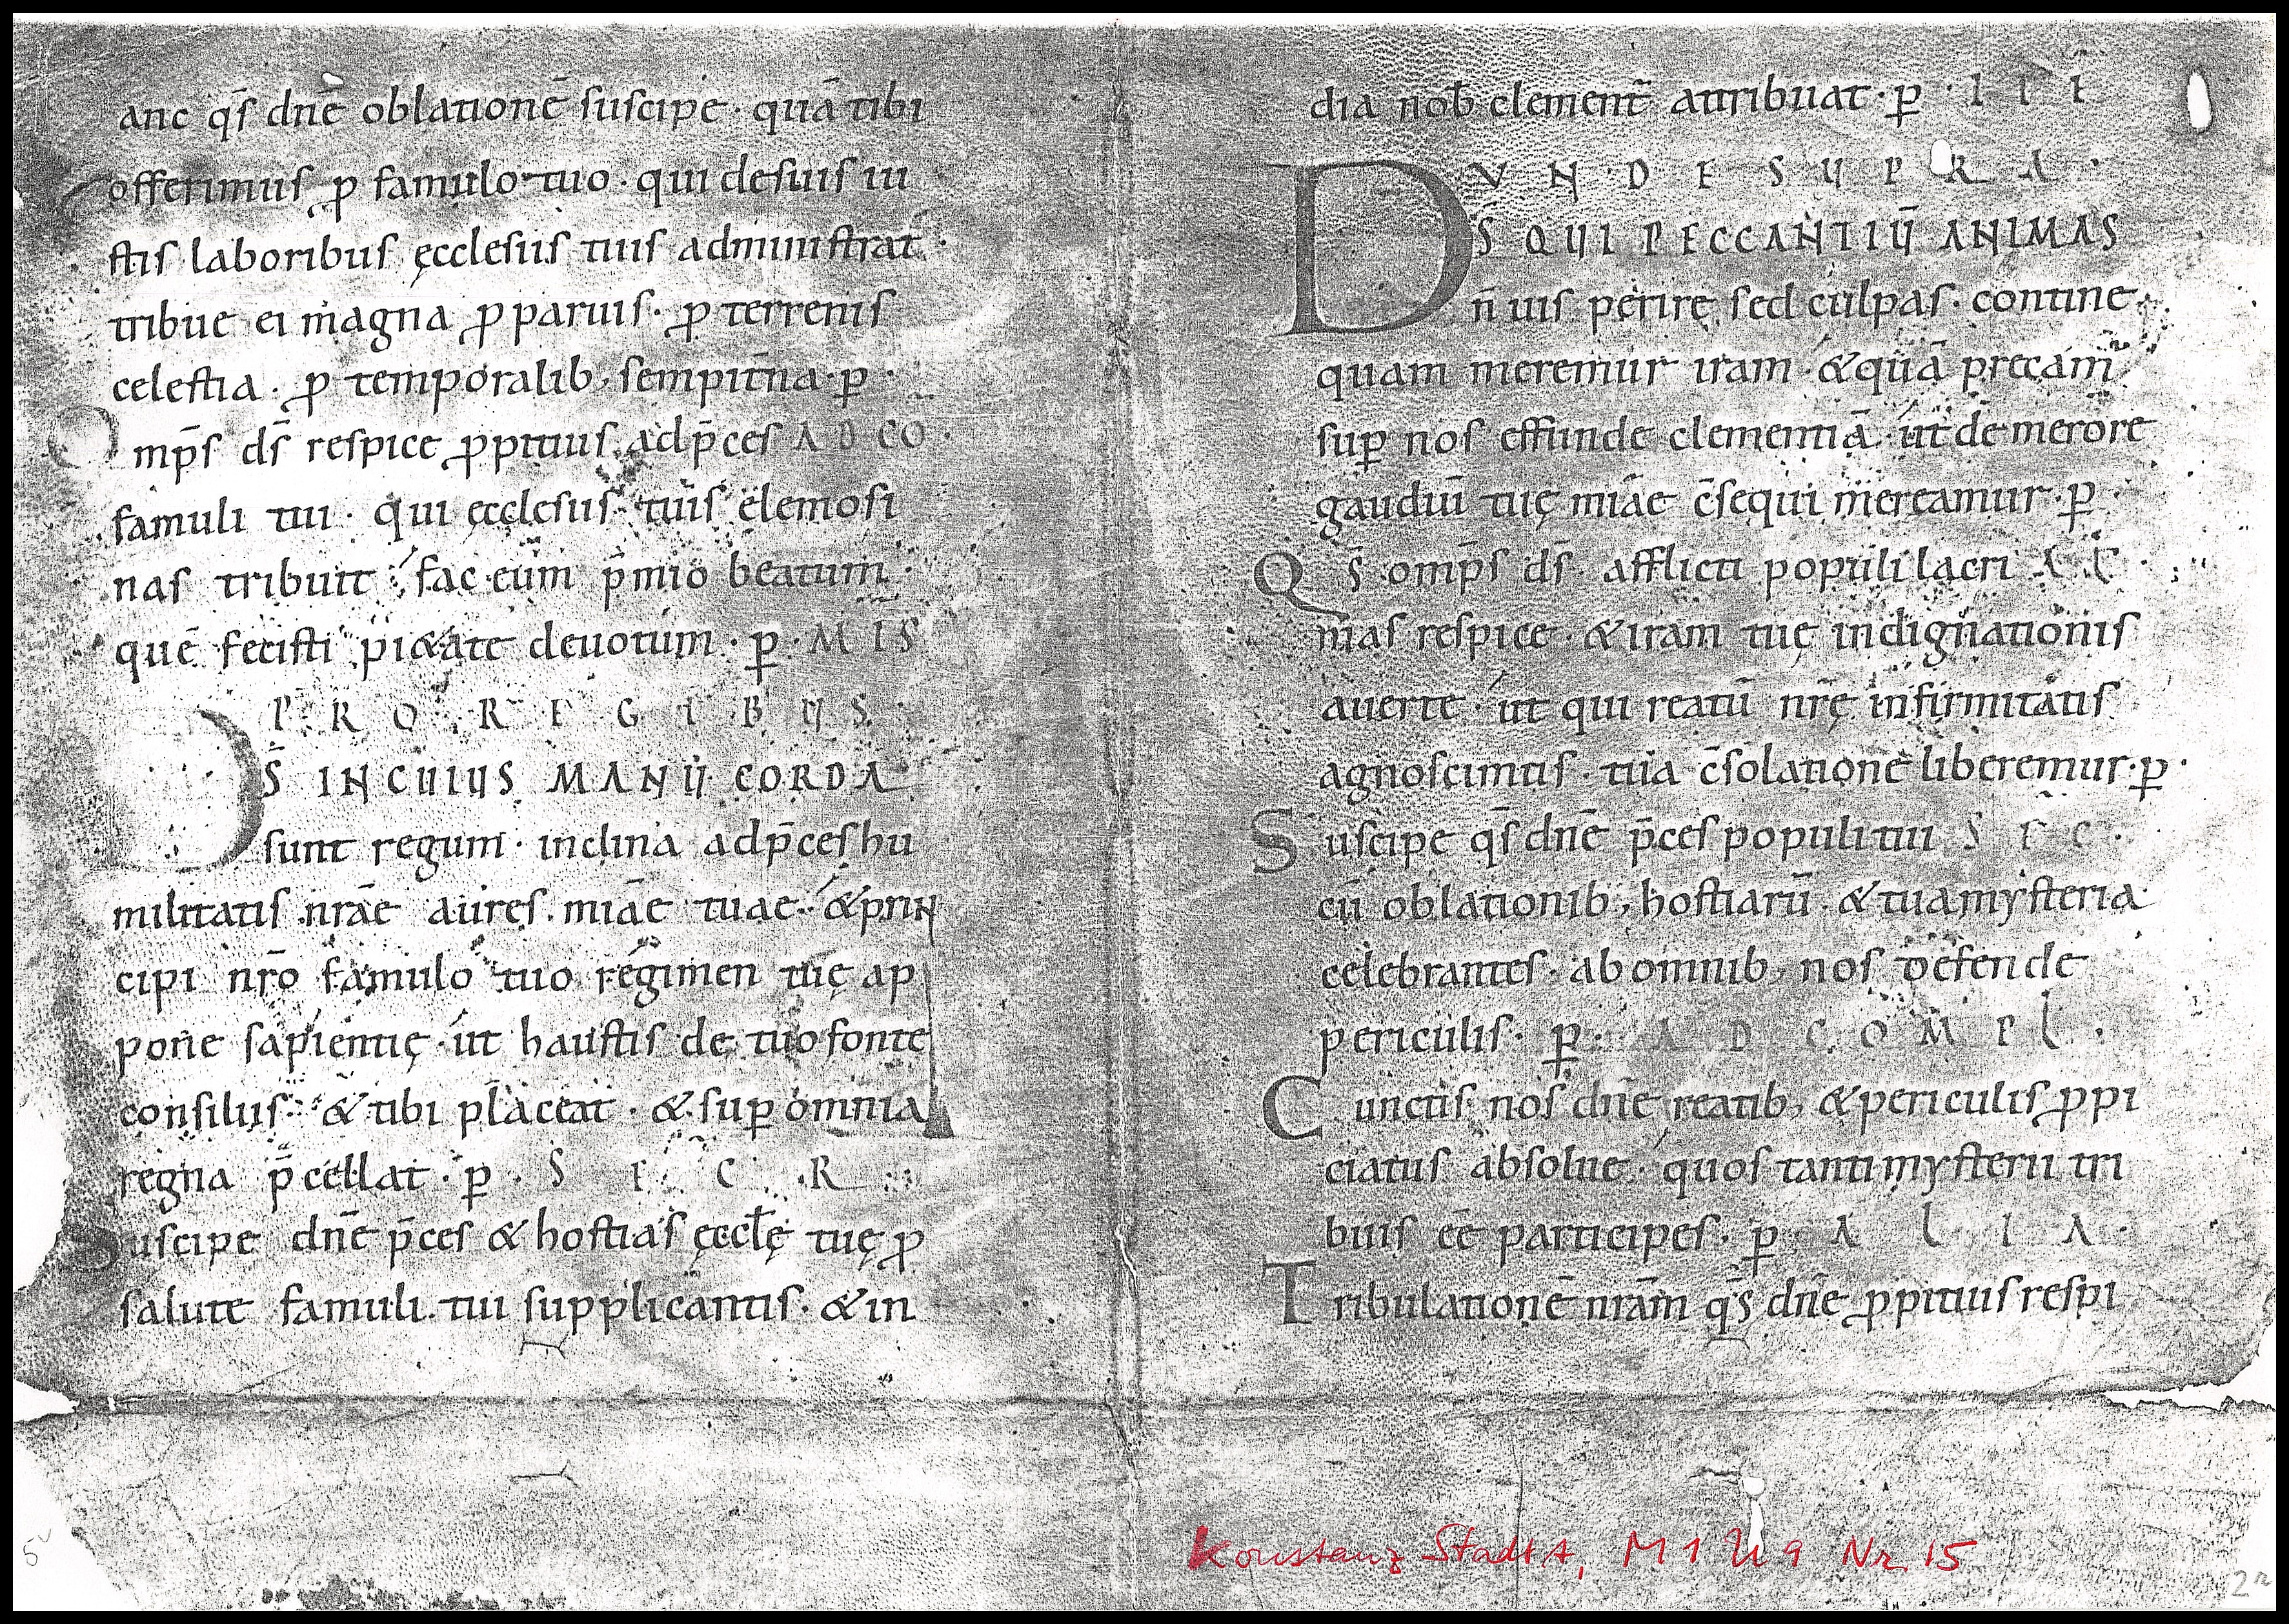 anc q̄s dn̄e oblationē suscipe · quā tibi
offerimus ꝓ famulo tuo · qui de suis iu
stis laboribus ęcclesiis tuis administrat ·
tribue ei magna ꝓ paruis · ꝓ terrenis
celestia · ꝓ temporalib; sempit̄na · ꝑ ·
Omp̄s ds̄ respice ꝓpitius ad p̄ces AD CO ·
famuli tui · qui ęcclesiis tuis elemosi
nas tribuit · fac eum p̄mio beatum ·
quē fecisti pi&ate deuotum · ꝑ · MIS
PRO REGIBUS ·
DS̄ IN CUIUS MANŪ CORDA
sunt regum · inclina ad p̄ces hu
militatis nrāe aures miāe tuae · & prin
cipi nr̄o famulo tuo regimen tuę ap
pone sapientię · ut haustis de tuo fonte
consiliis · & tibi placeat · & suꝑ omnia
regna p̄cellat · ꝑ · SECR
Suscipe dn̄e p̄ces & hostias ęccłę tuę ꝓ
salute famuli tui supplicantis · & in
dia nob̄ clement̄ attribuat · ꝑ · IIĪ
UNDE SUPRA ·
DS̄ QUI PECCANTIŪ ANIMAS
n̄ uis perire sed culpas · contine
quam meremur iram · & quā precam̄
suꝑ nos effunde clementiā · ut de merore
gaudiū tuę miāe c̄sequi mereamur · ꝑ ·
Qs̄ omp̄s ds̄ · afflicti populi lacri AĒ ·
mas respice · & iram tuę indignationis
auerte · ut qui reatū nrę̄ infirmitatis
agnoscimus · tua c̄solatione liberemur · ꝑ ·
Suscipe q̄s dn̄e p̄ces populi tui SEC ·
cū oblationib; hostiarū · & tua mysteria
celebrantes · ab omnib; nos defende
periculis · ꝑ · AD COMPL ·
Cunctis nos dn̄e reatib; & periculis ꝓpi
ciatus absolue · quos tanti mysterii tri
buis eē participes · ꝑ · ALIA ·
Tribulationē nrām q̄s dn̄e ꝓpitius respi
Konstanz StadtA, M 1 U 9 Nr. 15
5v
2r